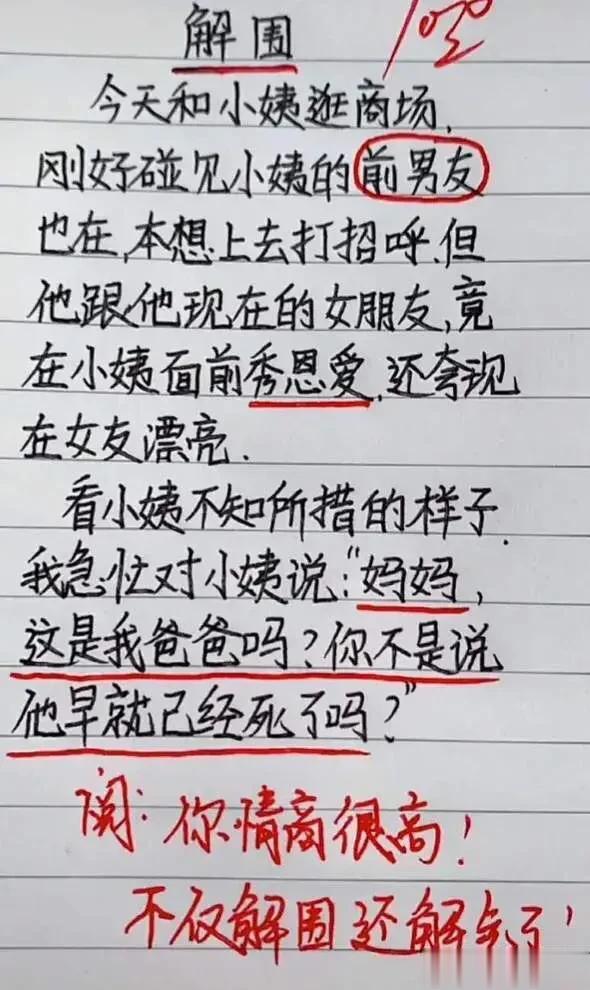 解围
100
今天和小姨逛商场,
刚好碰见小姨的前男友
也在,本想上去打招呼.但
他跟他现在的女朋友,竟
在小姨面前秀恩爱.还夸现
在女友漂亮.
看小姨不知所措的样子.
我急忙对小姨说:“妈妈,
这是我爸爸吗?你不是说
他早就已经死了吗?”
阅:你情商很高!
不仅解围还解气了!